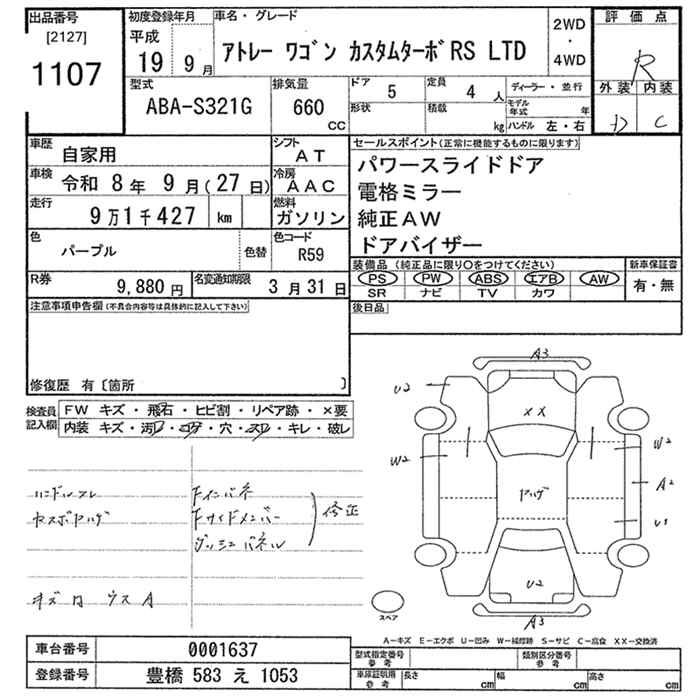 出品番号
[2127]
1107
初度登録年月
平成
19 9月
車名・グレード
アトレー ワゴン カスタムターボRS LTD
2WD
・
4WD
評価点
R
外装 内装
D C
型式
ABA-S321G
排気量
660
CC
ドア
5
定員
4人
形状
積載
kg
ディーラー・並行
モデル年式 年
ハンドル 左・右
車歴
自家用
シフト
AT
車検
令和 8年 9月(27日)
冷房
AAC
走行
9万1千427 km
燃料
ガソリン
色
パープル
色替
色コード
R59
R券
9,880円
名変通知期限
3月31日
セールスポイント(正常に機能するものに限ります)
パワースライドドア
電格ミラー
純正AW
ドアバイザー
装備品(純正品に限り○をつけてください)
PS PW ABS エアB AW
SR ナビ TV カワ
新車保証書
有・無
後日品
注意事項申告欄(不具合内容等は具体的に記入して下さい)
修復歴 有〔箇所 〕
検査員
記入欄
FW キズ・飛石・ヒビ割・リペア跡・×要
内装 キズ・汚レ・コゲ・穴・スレ・キレ・破レ
ハンドルスレ
Fインパネ
Fサイドメンバー
ダッシュパネル
修正
キズ凹 ウスA
A3
U2
XX
W2
W2
A2
ヤケ
U1
U2
A3
スペア
A-キズ E-エクボ U-凹み W-補修跡 S-サビ C-腐食 XX-交換済
車台番号
0001637
登録番号
豊橋 583 え 1053
型式指定番号
参考
類別区分番号
参考
車庫証明用
参考
長さ cm
幅 cm
高さ cm